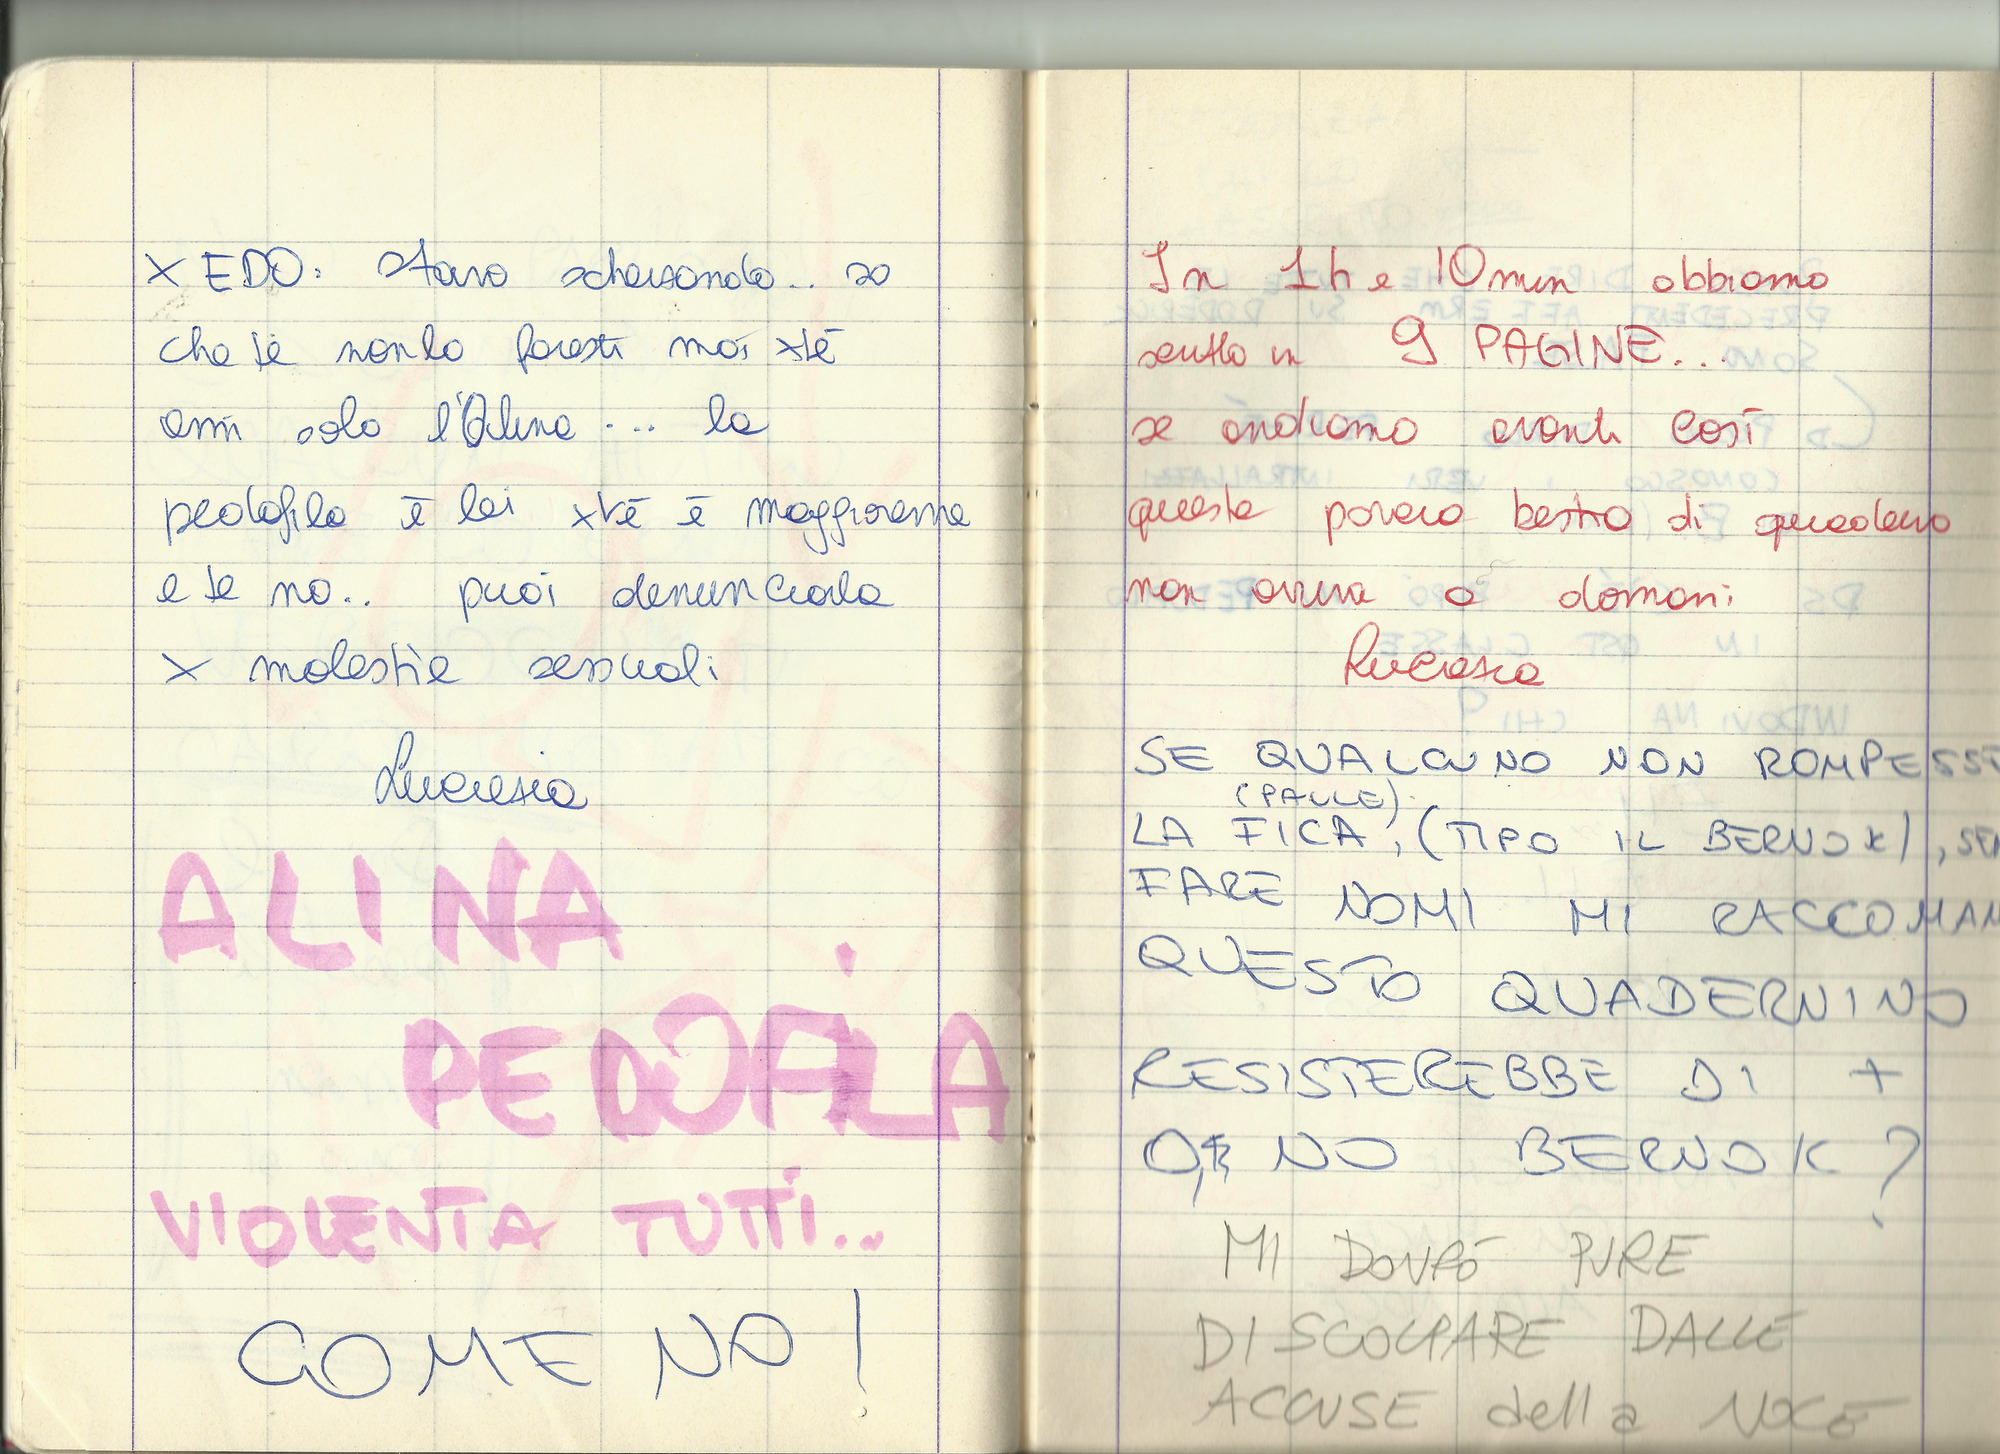 X EDO: stavo scherzando.. so
che te non lo faresti mai xké
ami solo l'Alina .... la
pedofila è lei xké è maggiorenne
e te no.. puoi denunciarla
X molestie sessuali
Lucrezia
ALINA
PEDOFILA
VIOLENTA TUTTI..
COME NO!
In 1h e 10 min abbiamo
scritto in 9 PAGINE...
se andiamo avanti così
questa povera bestia di quaderno
non arriva a domani
Lucrezia
SE QUALCUNO NON ROMPESSE
(PALLE)
LA FICA, (TIPO IL BERNOK), SEN
FARE NOMI MI RACCOMAN
QUESTO QUADERNINO
RESISTEREBBE DI +
O, NO BERNOK?
MI DOVRÒ PURE
DISCOLPARE DALLE
ACCUSE della NOCE